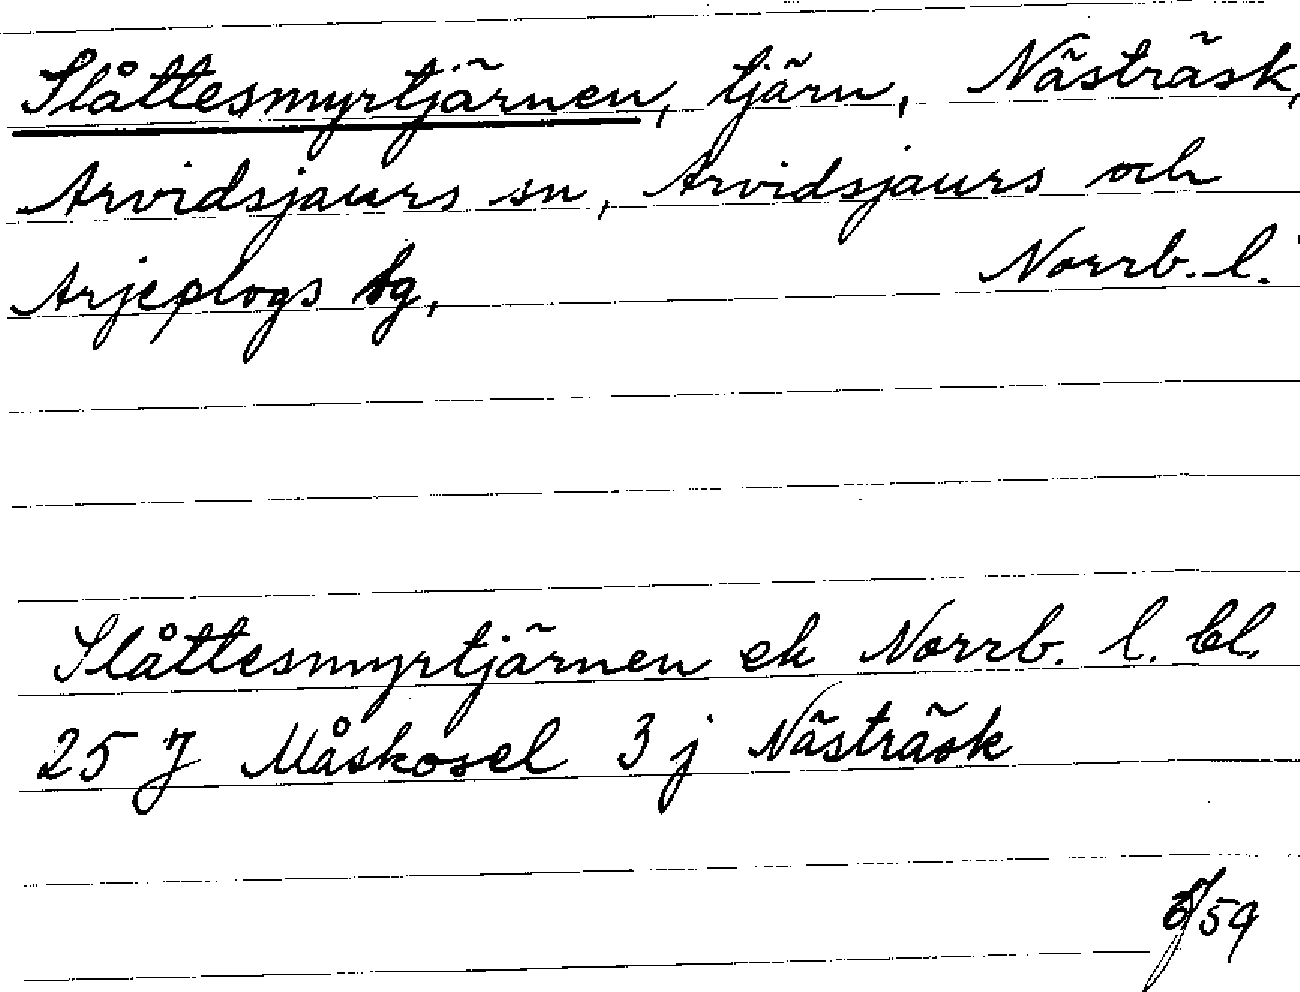 Slåttesmyrtjärnen, tjärn, Nästräsk,
Arvidsjaurs sn, Arvidsjaurs och
Arjeplogs tg, Norrb. l.
Slåttesmyrtjärnen ek Norrb. l. bl.
25 J Måskosel 3 j Nästräsk
/59